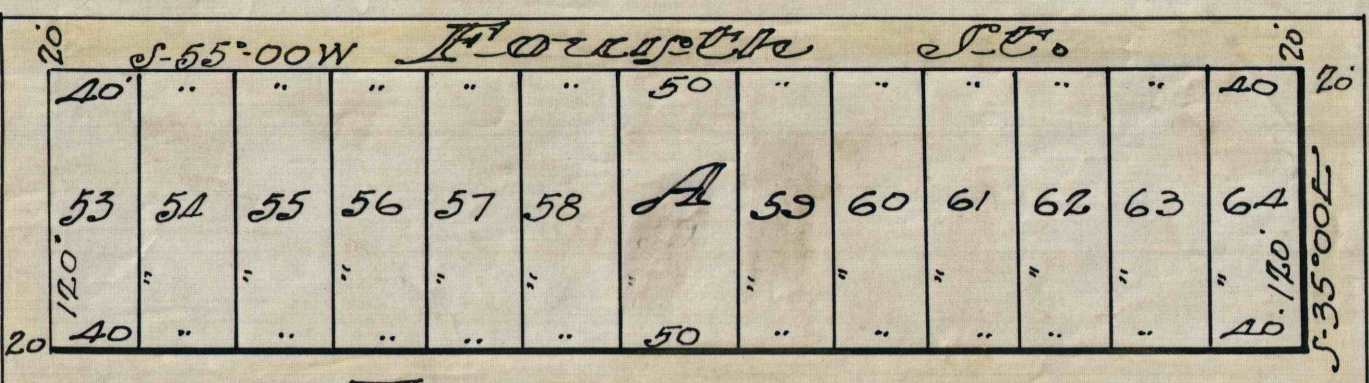 20' S-55°-00W Fourth St. 20'
40' " " " " " 50 " " " " " 40 20'
53 54 55 56 57 58 A 59 60 61 62 63 64
120' " " " " " " " " " " " " 120' S-35°00E
20 40 " " " " " 50 " " " " " 40